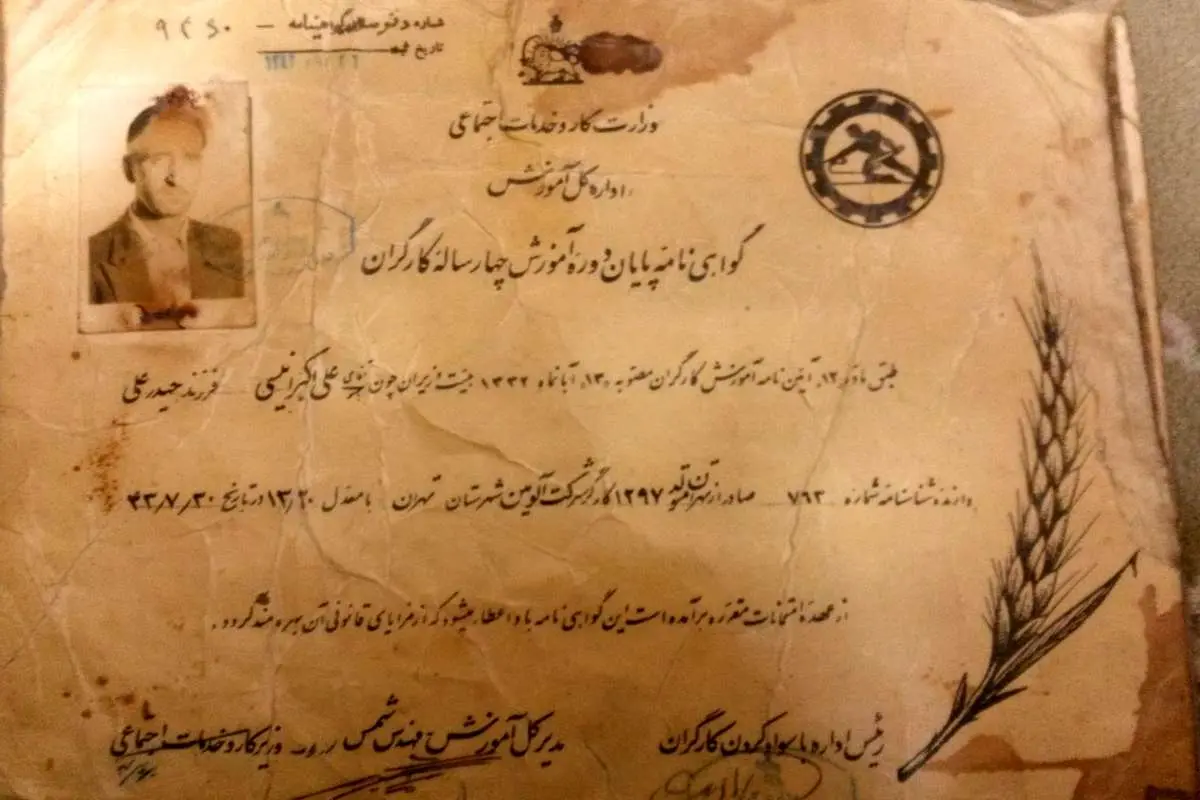 شماره دفتر گواهینامه - ۹۴۶۰
تاریخ ثبت
وزارت کار و خدمات اجتماعی
اداره کل آموزش
گواهی نامه پایان دوره آموزش چهار ساله کارگران
طبق ماده ۱۲ آیین نامه آموزش کارگران مصوبه ۱۳ آبانماه ۱۳۳۲ هیئت وزیران چون آقای علی اکبر انیسی فرزند حیدر علی
دارنده شناسنامه شماره ۷۶۳ صادر از تهران متولد ۱۲۹۷ کارگر شرکت آلومین شهرستان تهران با معدل ۱۳/۲۰ در تاریخ ۴۳/۷/۳۰
از عهده امتحانات مقرره برآمده است این گواهی نامه باو اعطاء میشود که از مزایای قانونی آن بهره مند گردد .
رئیس اداره با سواد کردن کارگران
مدیر کل آموزش مهندس شمس
وزیر کار و خدمات اجتماعی